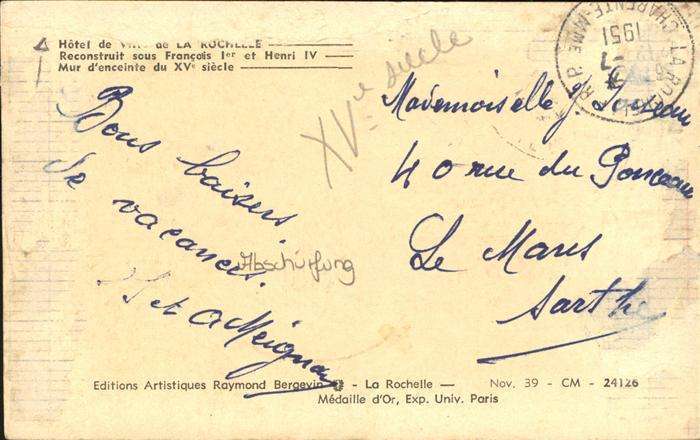 Hôtel de Ville de LA ROCHELLE
Reconstruit sous François Ier et Henri IV
Mur d'enceinte du XVe siècle
XVe siècle
LA ROCHELLE R.P.
1951
CHARENTE MME
Bons baisers
de vacances.
et A Meignan
Abschürfung
Mademoiselle
40 rue du Ponceau
Le Mans
Sarthe
Editions Artistiques Raymond Bergevin - La Rochelle — Nov. 39 - CM - 24126
Médaille d'Or, Exp. Univ. Paris